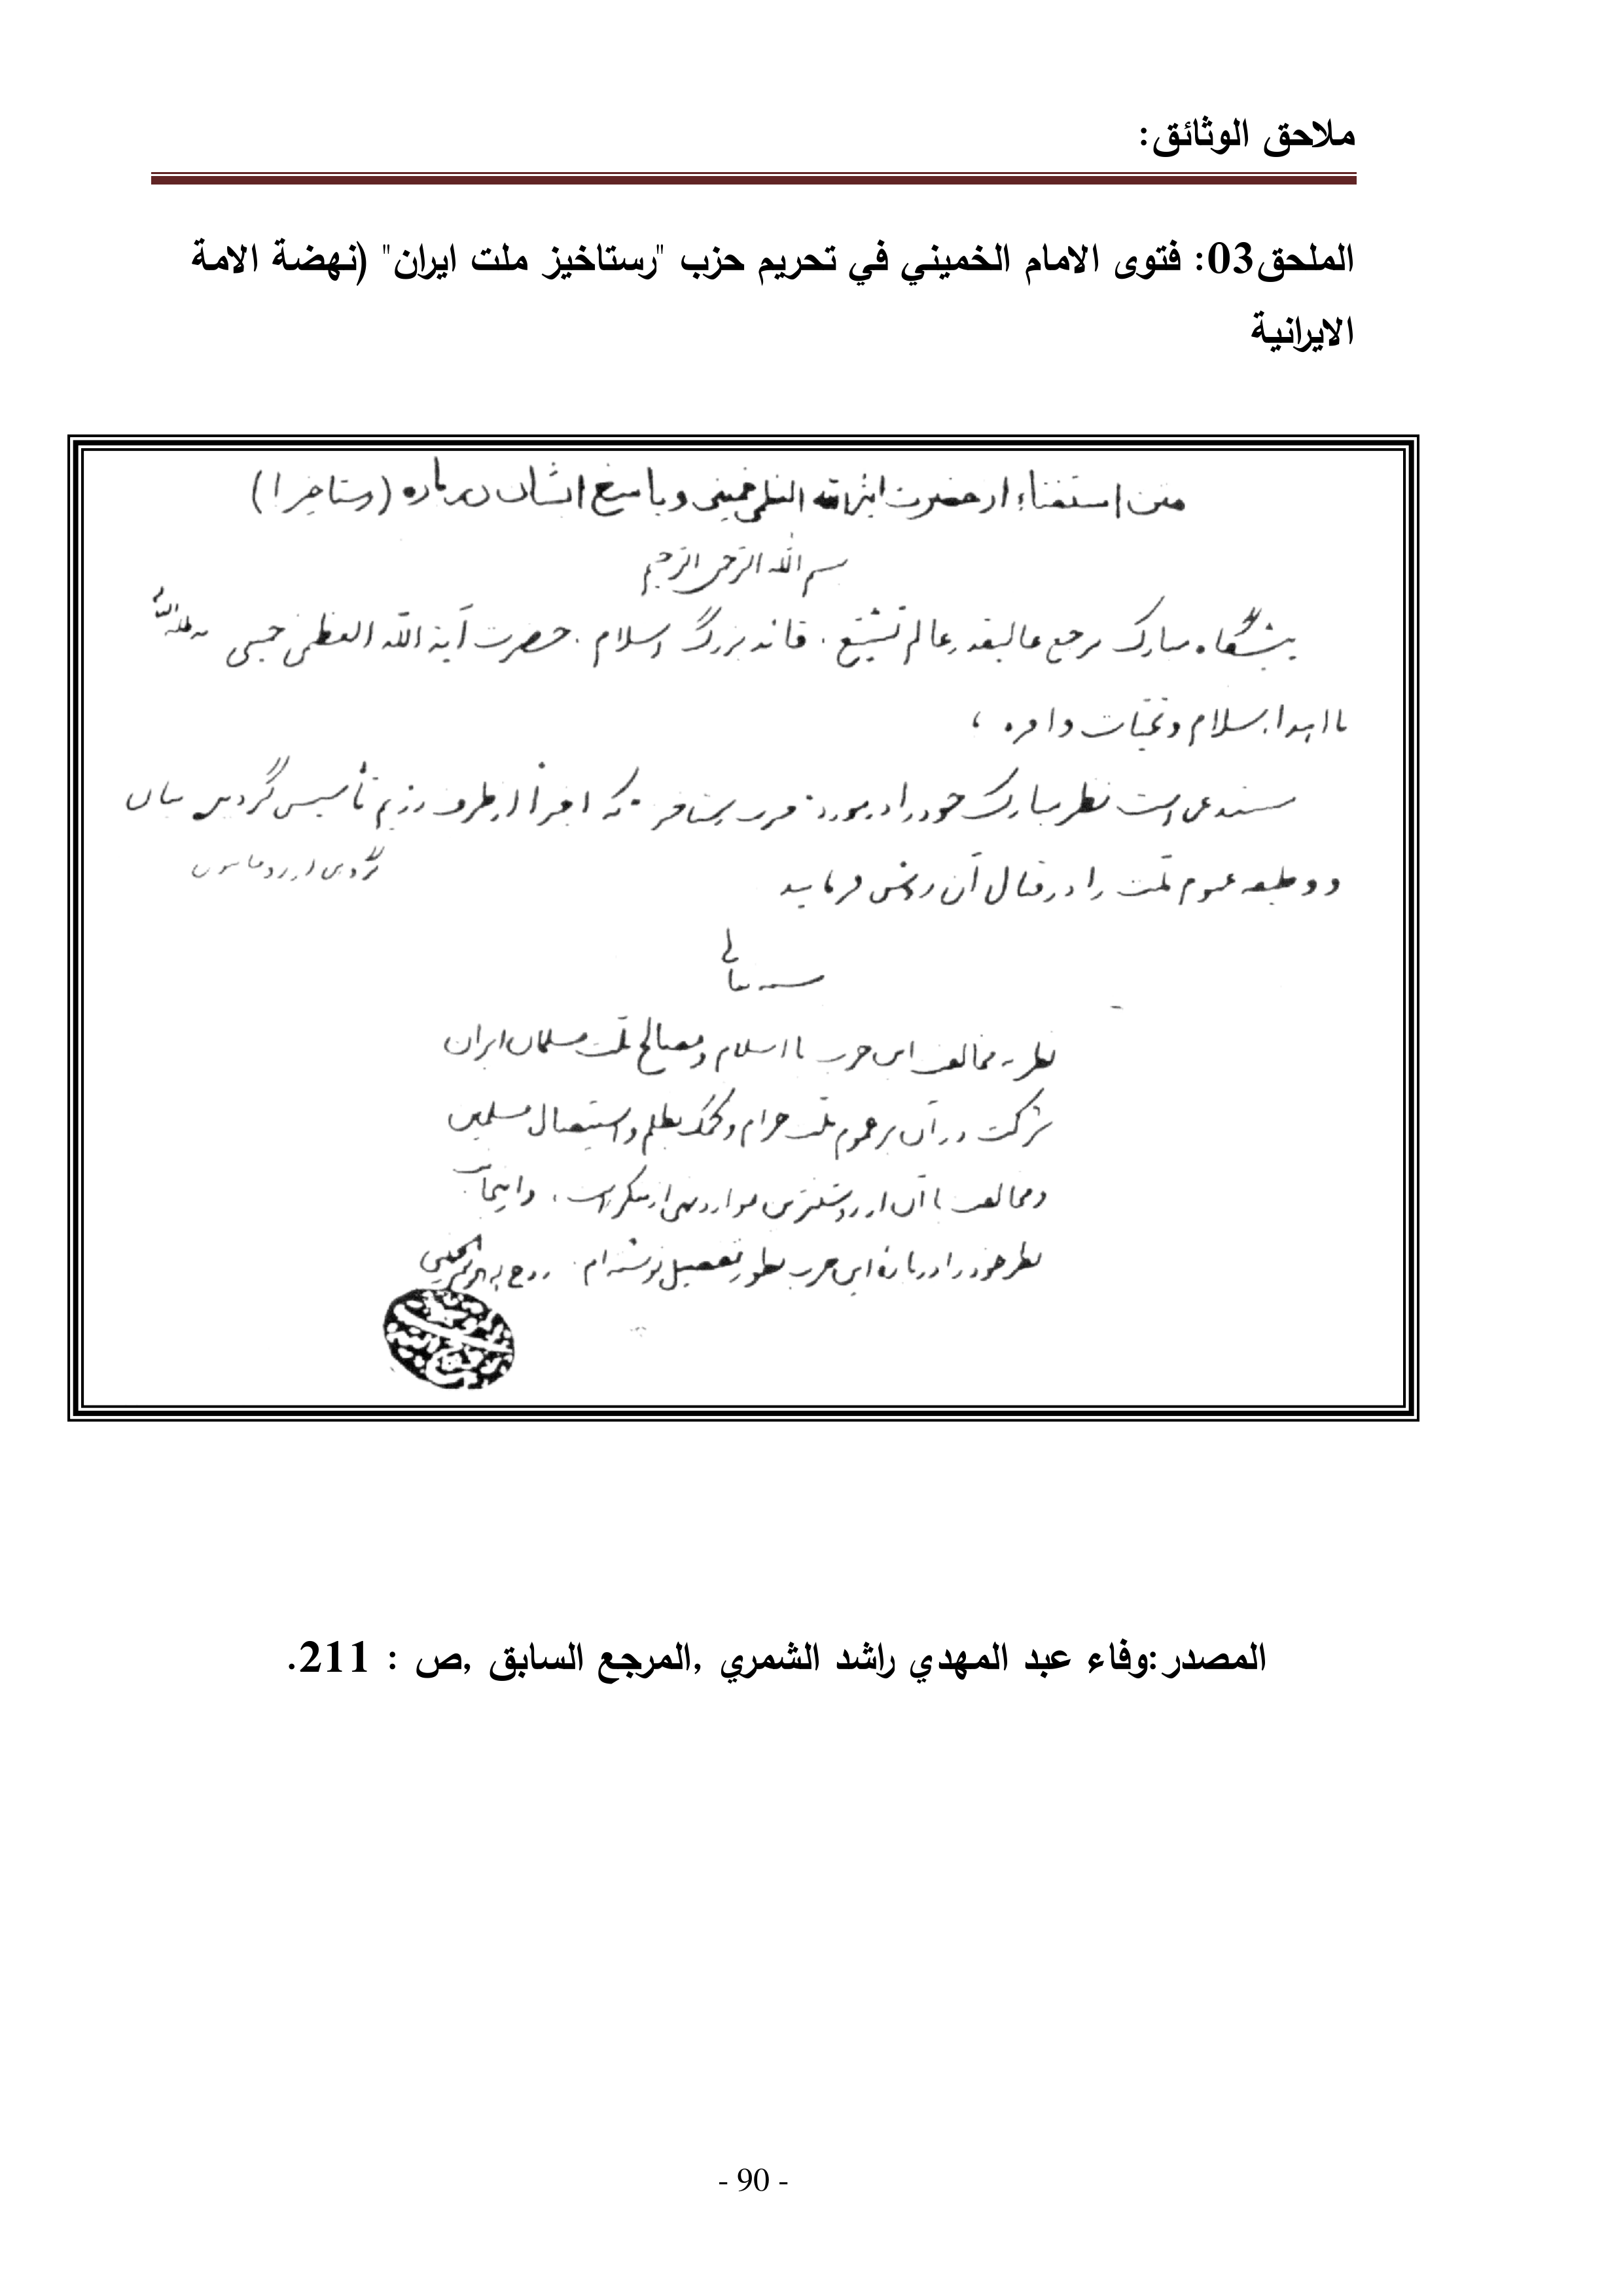 ملاحق الوثائق:
الملحق03: فتوى الامام الخميني في تحريم حزب "رستاخيز ملت ايران" (نهضة الامة
الايرانية
متن استفتاء از حضرت آیة الله العظمی خمینی و پاسخ ایشان درباره (رستاخیز)
بسم الله الرحمن الرحیم
پیشگاه مبارک مرجع عالیقدر عالم تشیع، قائد بزرگ اسلام، حضرت آیة الله العظمی خمینی مد ظله
با اهداء سلام و تحیات وافره،
مستدعی است نظر مبارک خود را در مورد حزب رستاخیز که اخیرا از طرف رژیم تأسیس گردیده بیان
و وظیفه عموم ملت را در قبال آن روشن فرمایید
گروهی از روحانیون
بسمه تعالی
نظر به مخالفت این حزب با اسلام و مصالح ملت مسلمان ایران
شرکت در آن بر عموم ملت حرام و کمک بظلم و استیصال مسلمین
و مخالفت با آن از روشنترین موارد نهی از منکر است، و اینجانب
نظر خود را درباره این حزب بطور تفصیل نوشته ام. روح الله الموسوی الخمینی
المصدر:وفاء عبد المهدي راشد الشمري ,المرجع السابق ,ص : 211.
- 90 -